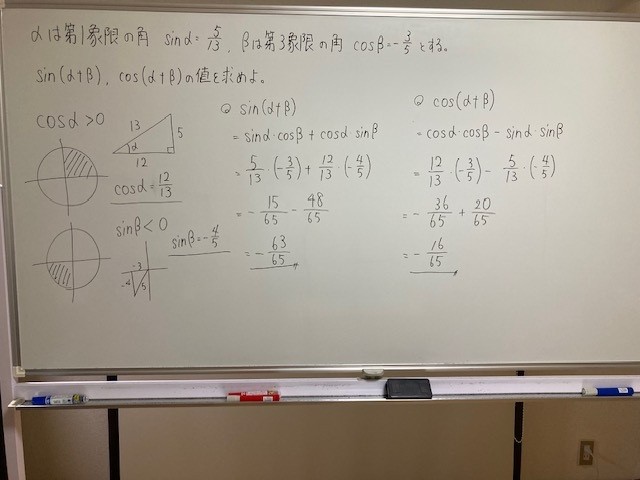 αは第1象限の角 sinα = 5/13 、βは第3象限の角 cosβ = -3/5 とする。
sin(α+β), cos(α+β)の値を求めよ。
cosα > 0
13
5
α
12
cosα = 12/13
sinβ < 0
sinβ = -4/5
-3
-4
5
◎ sin(α+β)
= sinα・cosβ + cosα・sinβ
= 5/13・(-3/5) + 12/13・(-4/5)
= - 15/65 - 48/65
= - 63/65
◎ cos(α+β)
= cosα・cosβ - sinα・sinβ
= 12/13・(-3/5) - 5/13・(-4/5)
= - 36/65 + 20/65
= - 16/65